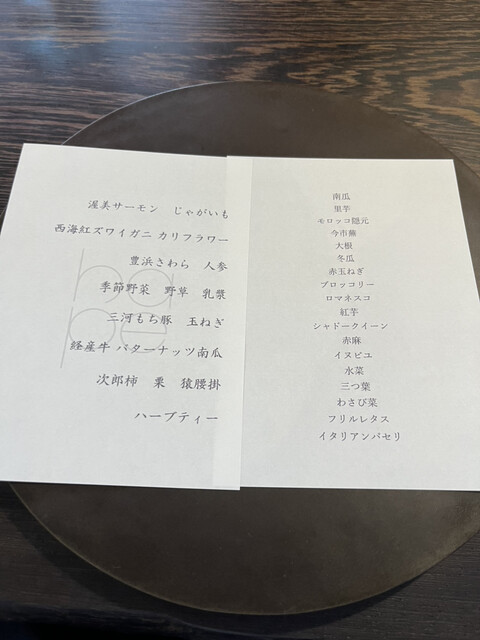 渥美サーモン じゃがいも
西海紅ズワイガニ カリフラワー
豊浜さわら 人参
季節野菜 野草 乳漿
三河もち豚 玉ねぎ
経産牛 バターナッツ南瓜
次郎柿 栗 猿腰掛
ハーブティー
ha
pe
南瓜
里芋
モロッコ隠元
今市蕪
大根
冬瓜
赤玉ねぎ
ブロッコリー
ロマネスコ
紅芋
シャドークイーン
赤麻
イヌビユ
水菜
三つ葉
わさび菜
フリルレタス
イタリアンパセリ